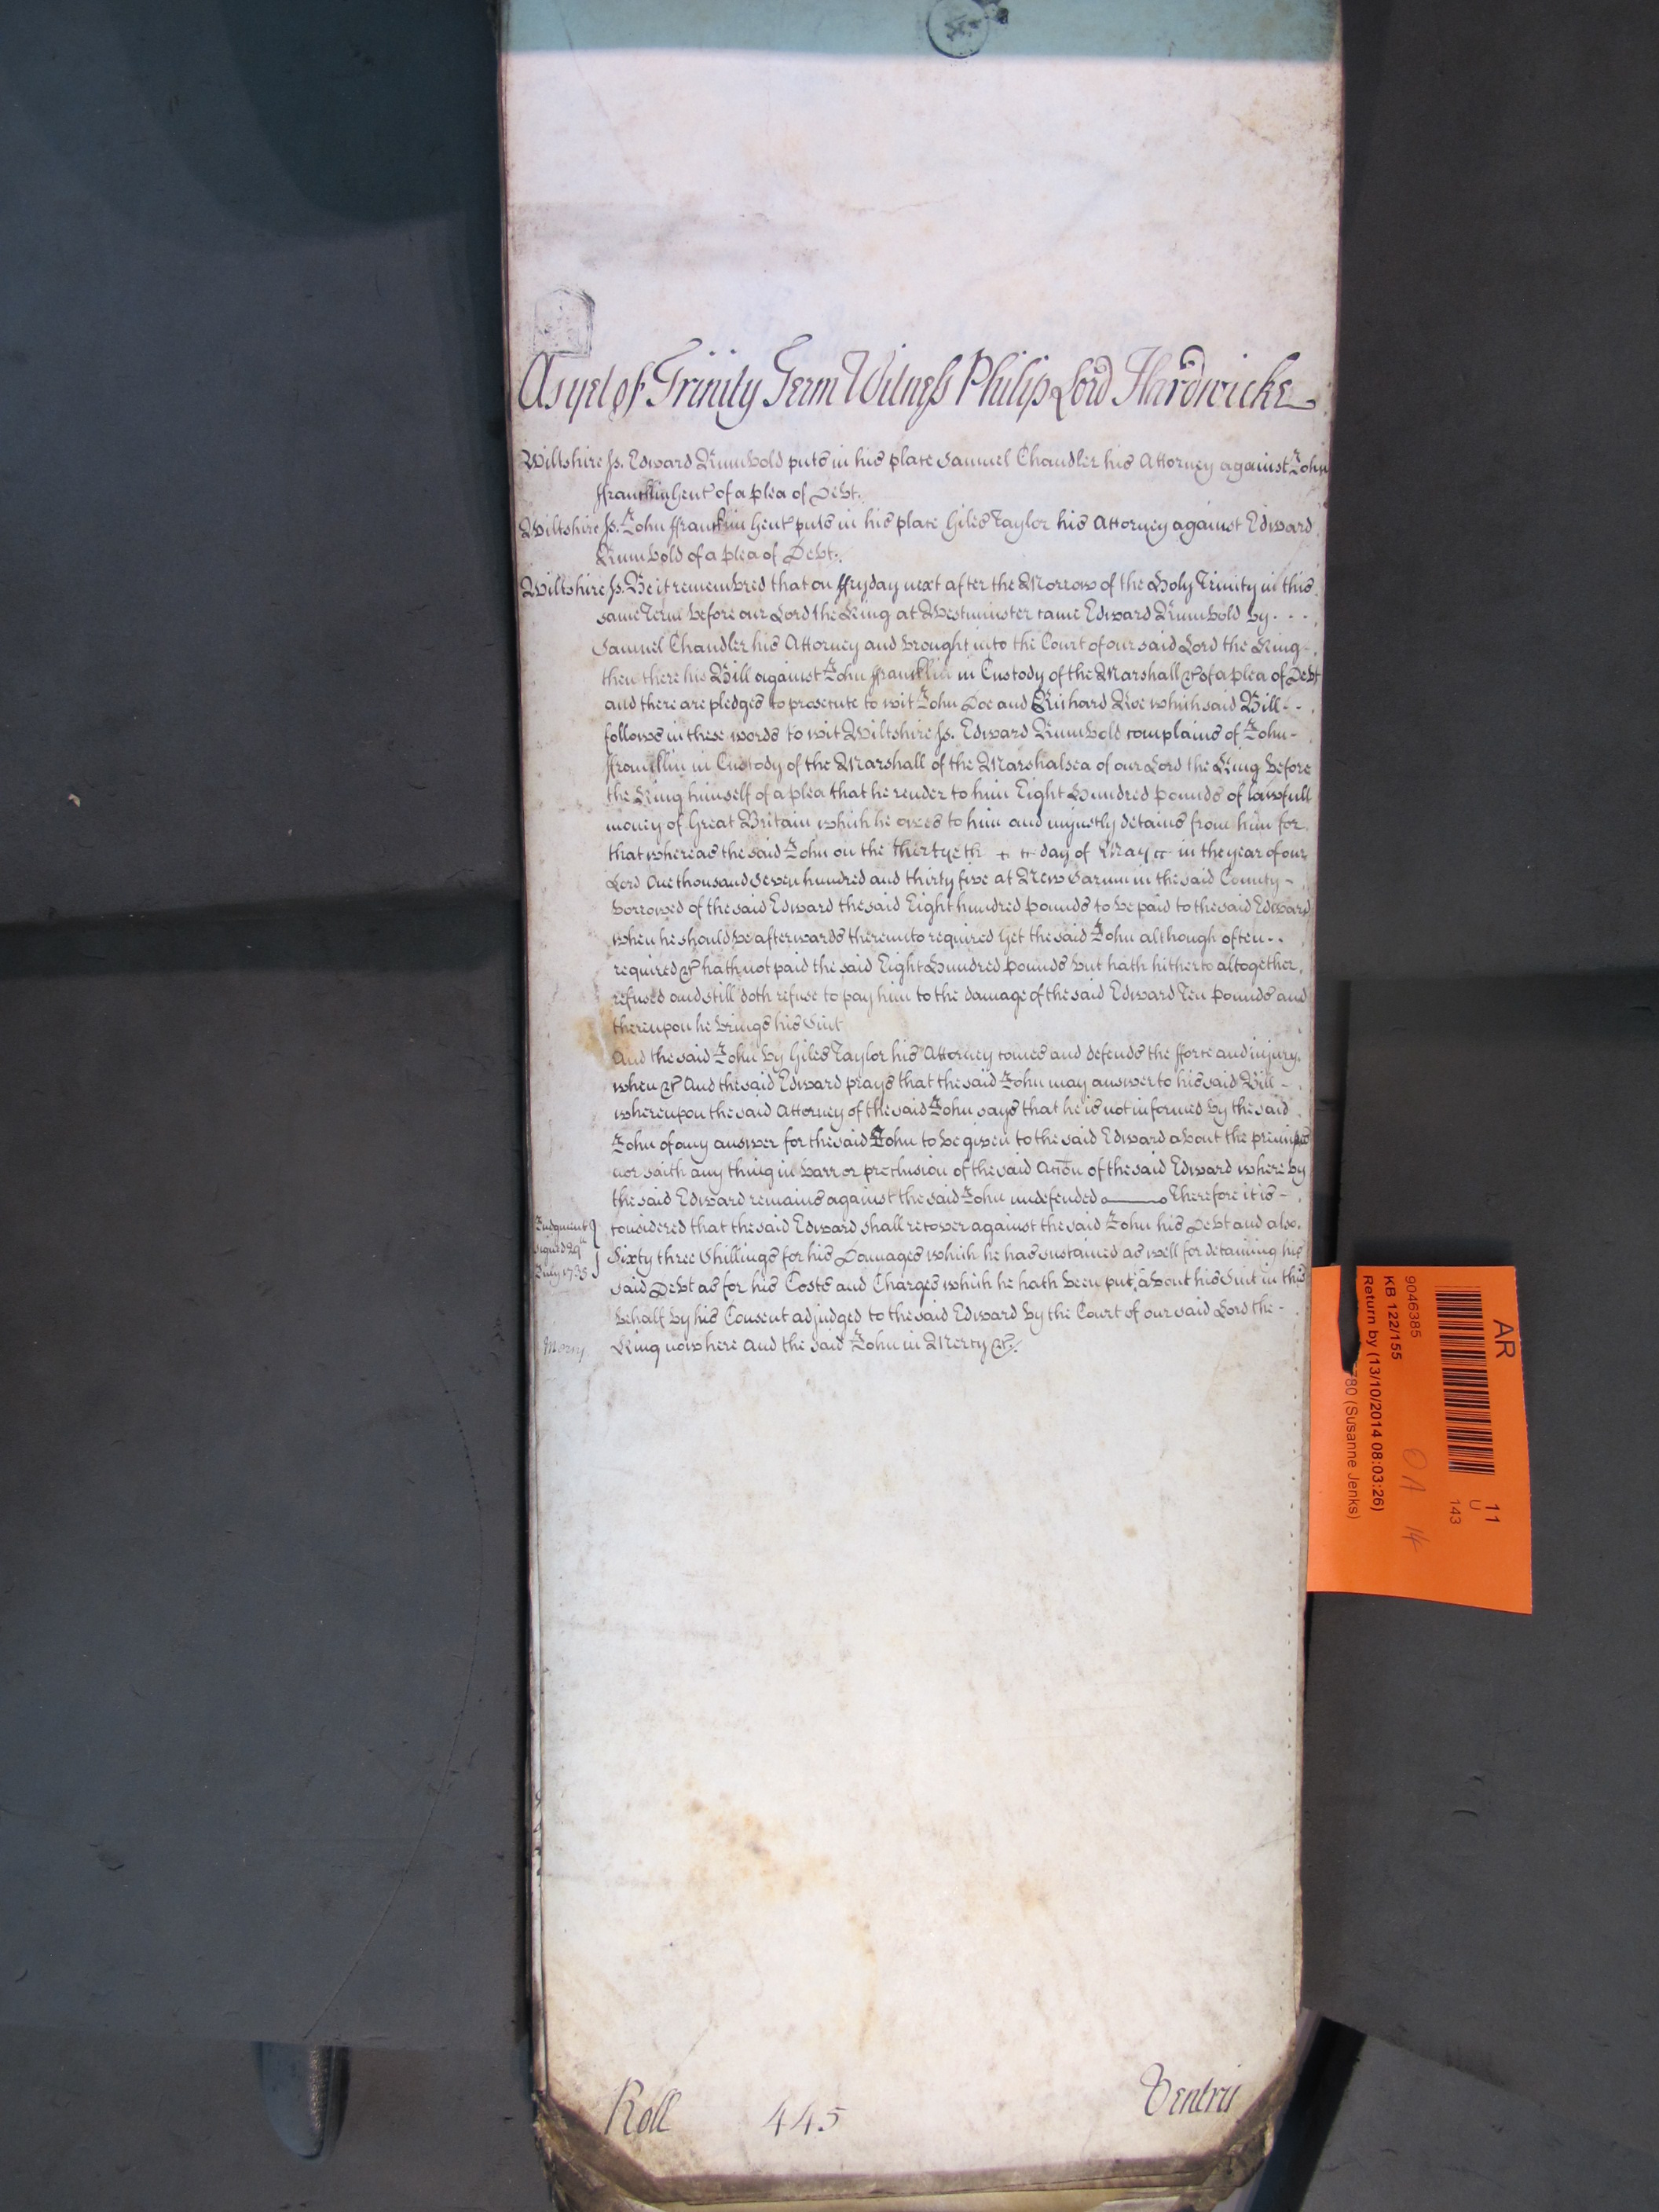 As yet of Trinity Term Witness Philip Lord Hardwicke
Wiltshire ss. Edward Rumbold puts in his place Samuel Chandler his Attorney against John
ffranklin Gent of a plea of Debt.
Wiltshire ss. John ffranklin Gent puts in his place Giles Taylor his Attorney against Edward
Rumbold of a plea of Debt.
Wiltshire ss. Be it remembred that on ffryday next after the Morrow of the Holy Trinity in this
same Term before our Lord the King at Westminster came Edward Rumbold by - - -
Samuel Chandler his Attorney and brought into the Court of our said Lord the King -
then there his Bill against John ffranklin in Custody of the Marshall &c of a plea of Debt
and there are pledges to prosecute to wit John Doe and Richard Roe which said Bill - -
follows in these words to wit Wiltshire ss. Edward Rumbold complains of John -
ffranklin in Custody of the Marshall of the Marshalsea of our Lord the King before
the King himself of a plea that he render to him Eight Hundred pounds of lawfull
money of Great Britain which he owes to him and unjustly detains from him for
that whereas the said John on the thirtyeth day of May in the year of our
Lord One thousand Seven hundred and thirty five at New Sarum in the said County -
borrowed of the said Edward the said Eight hundred pounds to be paid to the said Edward
when he should be afterwards thereunto required Yet the said John although often - -
required &c hath not paid the said Eight Hundred pounds but hath hitherto altogether
refused and still doth refuse to pay him to the damage of the said Edward Ten pounds and
thereupon he brings his Suit
And the said John by Giles Taylor his Attorney comes and defends the fforce and injury
when &c And the said Edward prays that the said John may answer to his said Bill -
whereupon the said Attorney of the said John says that he is not informed by the said
John of any answer for the said John to be given to the said Edward about the
nor saith any thing in barr or preclusion of the said Action of the said Edward where by
the said Edward remains against the said John undefended Therefore it is -
considered that the said Edward shall recover against the said John his Debt and also
Judgment
signed 29th
July 1735
Sixty three Shillings for his Damages which he has sustained as well for detaining his
said Debt as for his Costs and Charges which he hath been put about his Suit in this
behalf by his Consent adjudged to the said Edward by the Court of our said Lord the -
Mercy
King now here And the said John in Mercy &c.
Roll 445
Ventris
AR
11
U
143
9046385
KB 122/155
Return by (13/10/2014 08:03:26)
780 (Susanne Jenks)